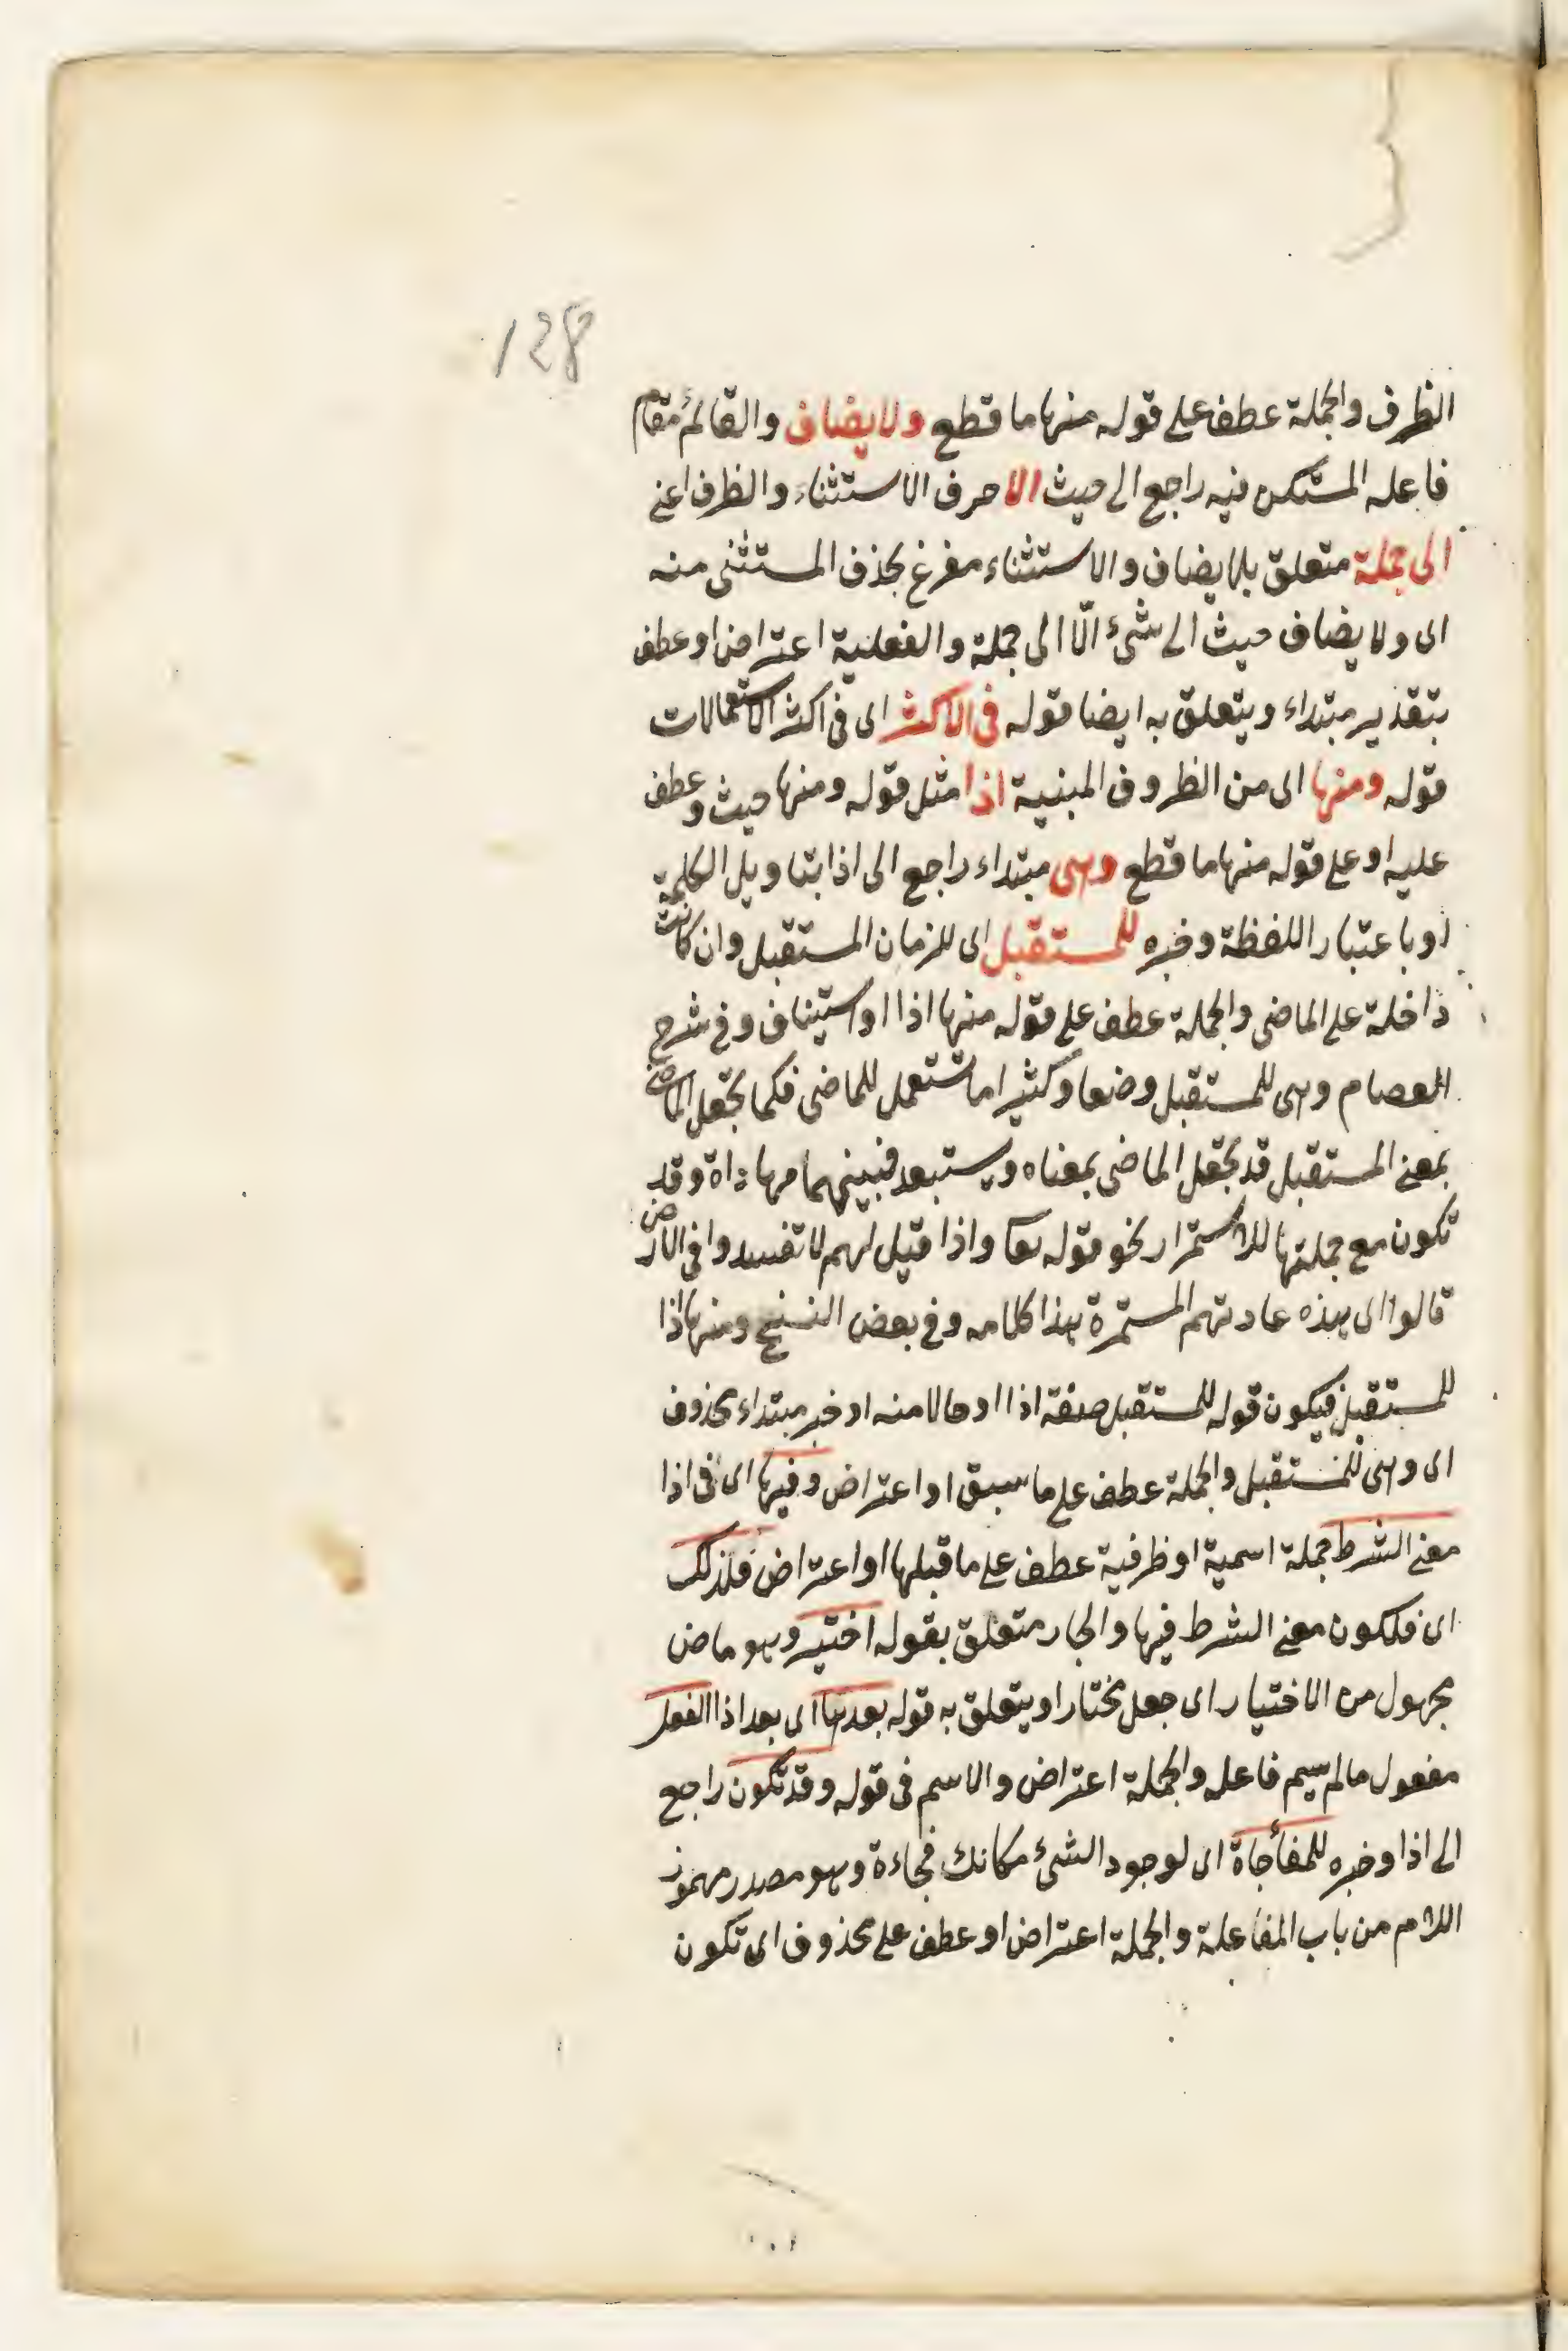 128
الظرف والجملة عطف على قوله منها ما قطع ولا يضاف والقائم مقام
فاعله المستكن فيه راجع الى حيث الا حرف الاستثناء والظرف اعنى
الى جملة متعلق بلا يضاف والاستثناء مفرغ بحذف المستثنى منه
اى ولا يضاف حيث الى شئ الّا الى جملة والفعلية اعتراض او عطف
بتقدير مبتداء ويتعلق به ايضا قوله فى الاكثر اى فى اكثر الاستعمالات
قوله ومنها اى من الظروف المبنية اذا مثل قوله ومنها حيث وعطف
عليه او على قوله منها ما قطع وهى مبتداء راجع الى اذا بتاويل الكلمة
او باعتبار اللفظة وخبره للمستقبل اى للزمان المستقبل وان كانت
داخلة على الماضى والجملة عطف على قوله منها اذا او استيناف وفى شرح
العصام وهى للمستقبل وضعا وكثيرا ما تستعمل للماضى فكما يجعل الماضى
بمعنى المستقبل قد يجعل الماضى بمعناه ويستبعد فبينهما مهاداة وقد
تكون مع جملتها للاستمرار نحو قوله تعا واذا قيل لهم لا تفسدوا فى الارض
قالوا اى هذه عادتهم المستمرة هذا كلامه وفى بعض النسخ ومنها اذا
للمستقبل فيكون قوله للمستقبل صفة اذا او حالا منه او خبر مبتداء محذوف
اى وهى للمستقبل والجملة عطف على ما سبق او اعتراض وفيها اى فى اذا
معنى الشرط جملة اسمية او ظرفية عطف على ما قبلها او اعتراض فلذلك
اى فلكون معنى الشرط فيها والجار متعلق بقوله اختير وهو ماض
مجهول من الاختيار اى جعل مختارا ويتعلق به قوله بعدها اى بعد اذا الفعل
مفعول مالم يسم فاعله والجملة اعتراض والاسم فى قوله وقد تكون راجع
الى اذا وخبره للمفأجاة اى لوجود الشئ مكانك فجاءة وهو مصدر مهموز
اللام من باب المفاعلة والجملة اعتراض او عطف على محذوف اى تكون